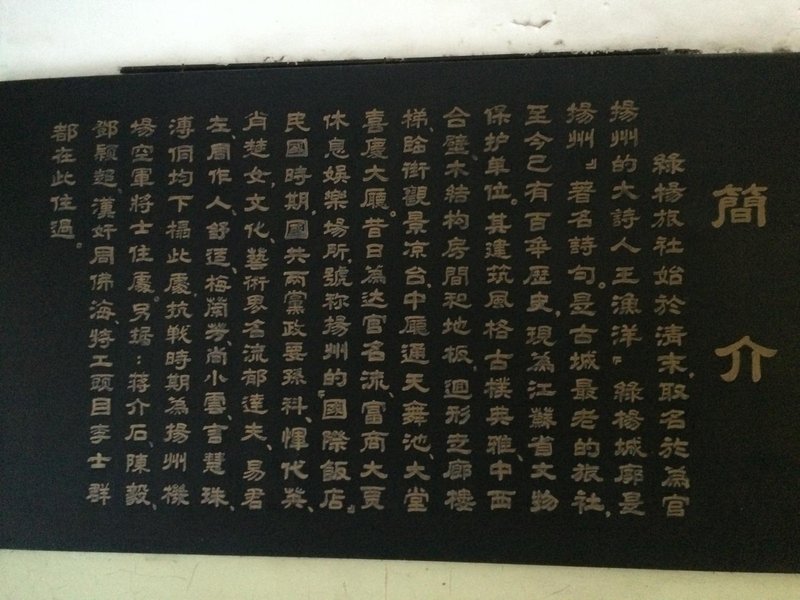 簡介
綠楊旅社始於清末，取名於為官
揚州的大詩人王漁洋『綠楊城廓是
揚州』著名詩句。是古城最老的旅社，
至今已有百年歷史，現為江蘇省文物
保护单位。其建筑風格古樸典雅，中西
合璧，木結构房間和地板，迴形之廊樓
梯，臨街觀景凉台，中廳通天舞池，大堂
喜慶大廳。昔日為达官名流、富商大賈
休息娛樂場所，號称揚州的『國際飯店』。
民國時期，國共兩黨政要孫科、惲代英、
肖楚女，文化、藝術界名流郁達夫、易君
左、周作人、舒湮、梅蘭芳、尚小雲、言慧珠、
溥侗均下榻此處，抗戰時期為揚州機
場空軍將士住處。另据：蒋介石、陳毅、
鄧颖超、漢奸周佛海、特工頭目李士群
都在此住過。